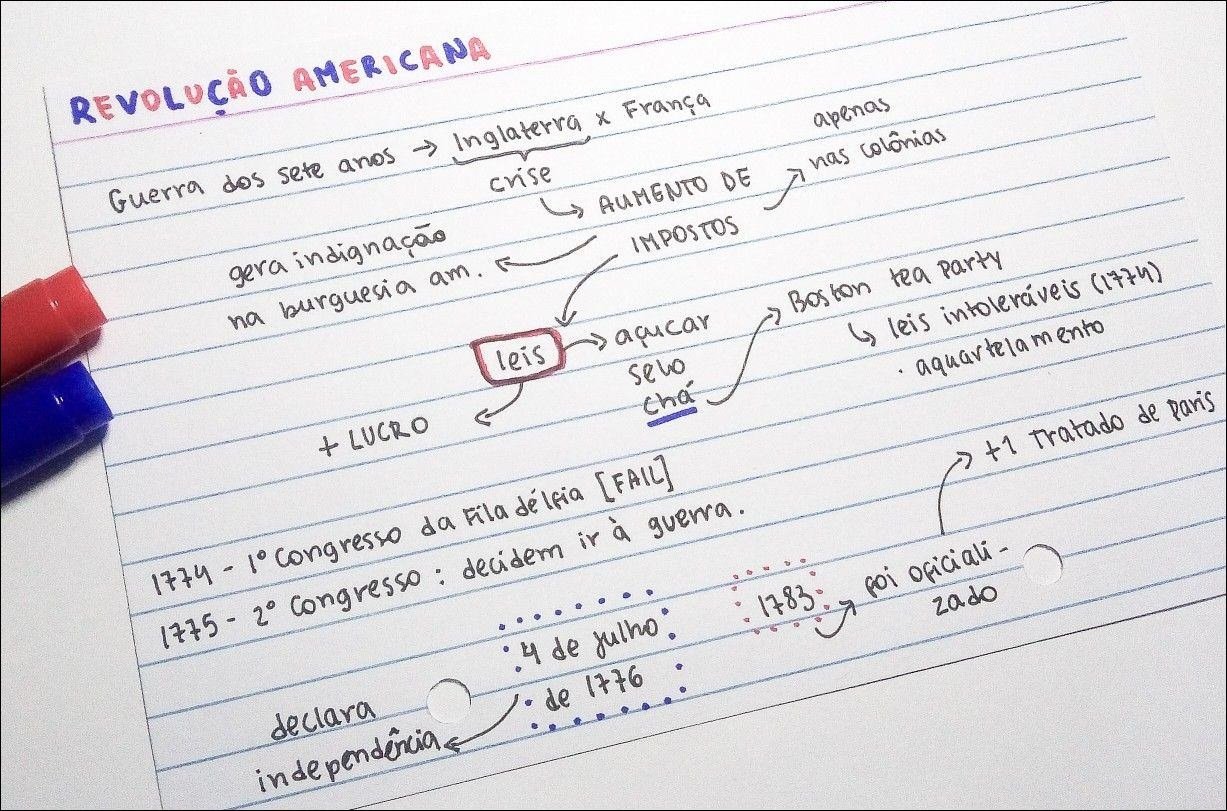 REVOLUÇÃO AMERICANA
Guerra dos sete anos → Inglaterra x França
crise
AUMENTO DE
IMPOSTOS
apenas
nas colônias
gera indignação
na burguesia am.
leis
açucar
selo
chá
Boston tea party
leis intoleráveis (1774)
· aquartelamento
+ LUCRO
1774 - 1º Congresso da Filadélfia [FAIL]
1775 - 2º Congresso : decidem ir à guerra.
4 de julho
de 1776
declara
independência
1783
foi oficiali-
zado
+1 Tratado de paris